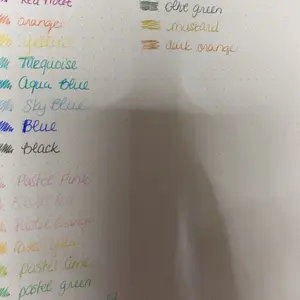 Red violet
orange
yellow
Turquoise
Aqua Blue
Sky Blue
Blue
Black
Pastel Pink
Pastel
Pastel Orange
Pastel yellow
pastel lime
pastel green
Olive green
mustard
dark orange